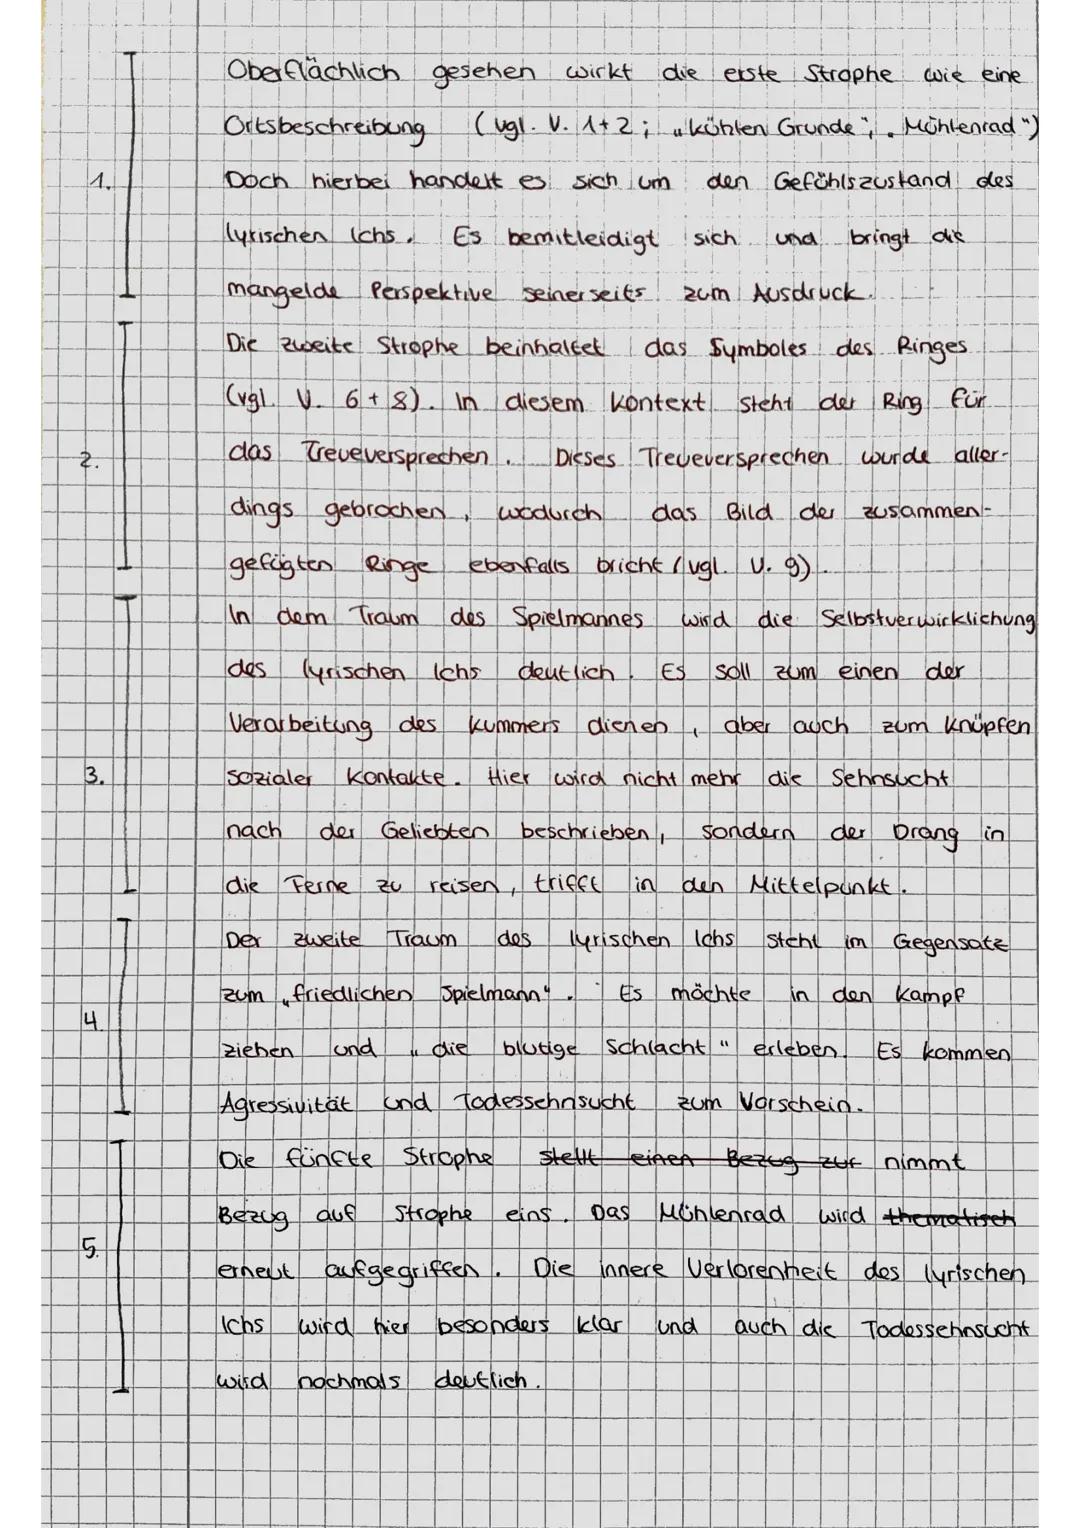 Oberflächlich gesehen wirkt die erste Strophe wie eine
Ortsbeschreibung (vgl. V. 1+2; „kühlen Grunde"; „Mühlenrad")
1. Doch hierbei handelt es sich um den Gefühlszustand des
lyrischen Ichs. Es bemitleidigt sich und bringt die
mangelde Perspektive seinerseits zum Ausdruck.
Die zweite Strophe beinhaltet das Symboles des Ringes
(vgl. V. 6+8). In diesem Kontext steht der Ring für
2. das Treueversprechen. Dieses Treueversprechen wurde aller-
dings gebrochen, wodurch das Bild der zusammen-
gefügten Ringe ebenfalls bricht (vgl. V. 9).
In dem Traum des Spielmannes wird die Selbstverwirklichung
des lyrischen Ichs deutlich. Es soll zum einen der
Verarbeitung des Kummers dienen, aber auch zum Knüpfen
3. sozialer Kontakte. Hier wird nicht mehr die Sehnsucht
nach der Geliebten beschrieben, sondern der Drang in
die Ferne zu reisen, trifft in den Mittelpunkt.
Der zweite Traum des lyrischen Ichs steht im Gegensatz
zum „friedlichen Spielmann". Es möchte in den Kampf
4. ziehen und „die blutige Schlacht" erleben. Es kommen
Agressivität und Todessehnsucht zum Vorschein.
Die fünfte Strophe stellt einen Bezug zur nimmt
Bezug auf Strophe eins. Das Mühlenrad wird thematisch
5. erneut aufgegriffen. Die innere Verlorenheit des lyrischen
Ichs wird hier besonders klar und auch die Todessehnsucht
wird nochmals deutlich.